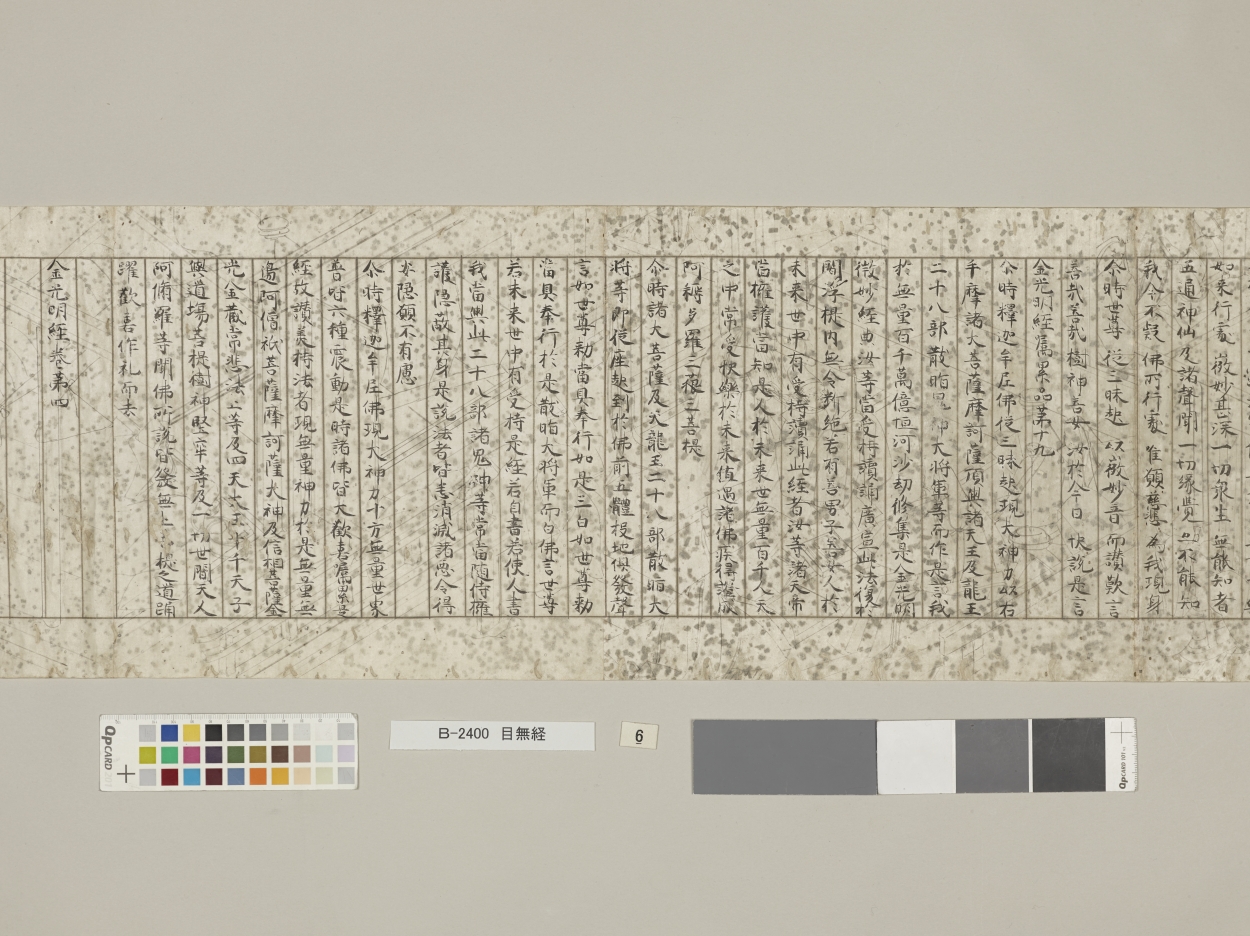 如来行處微妙甚深一切衆生無能知者
五通神仙及諸聲聞一切縁覺亦不能知
我今不疑佛所行處唯願慈悲為我現身
尒時世尊従三昧起以微妙音而讃歎言
善哉善哉樹神善女汝於今日快說是言
金光明経嘱累品苐十九
尒時釋迦牟尼佛従三昧起現大神力以右
手摩諸大菩薩摩訶薩頂與諸天王及龍王
二十八部散脂鬼神大将軍等而作是言我
於無量百千萬億恒河沙劫修集是金光明
微妙経典汝等當受持讀誦廣宣此法復於
閻浮提内無令断絶若有善男子善女人於
未来世中有受持讀誦此経者汝等諸天常
當擁護當知是人於未来世無量百千人天
之中常受快樂於未来值遇諸佛疾得證成
阿耨多羅三藐三菩提
尒時諸大菩薩及天龍王二十八部散脂大
将等即従座起到於佛前五體投地俱發聲
言如世尊勅當具奉行如是三白如世尊勅
當具奉行於是散脂大将軍而白佛言世尊
若未来世中有受持是経若自書若使人書
我當與此二十八部諸鬼神等常當随侍擁
護隠蔽其身是說法者皆悉消滅諸惡令得
安隠願不有慮
尒時釋迦牟尼佛現大神力十方無量世界
普皆六種震動是時諸佛皆大歡喜嘱累是
経故讃美持法者現無量神力於是無量無
邊阿僧祇菩薩摩訶薩大神及信相菩薩金
光金藏常悲法上等及四天大王十千天子
與道場菩提樹神堅牢等及一切世間天人
阿脩羅等聞佛所說皆發無上菩提之道踊
躍歡喜作礼而去
金光明経巻苐四
B-2400 目無経
6
QPCARD
QPCARD 101